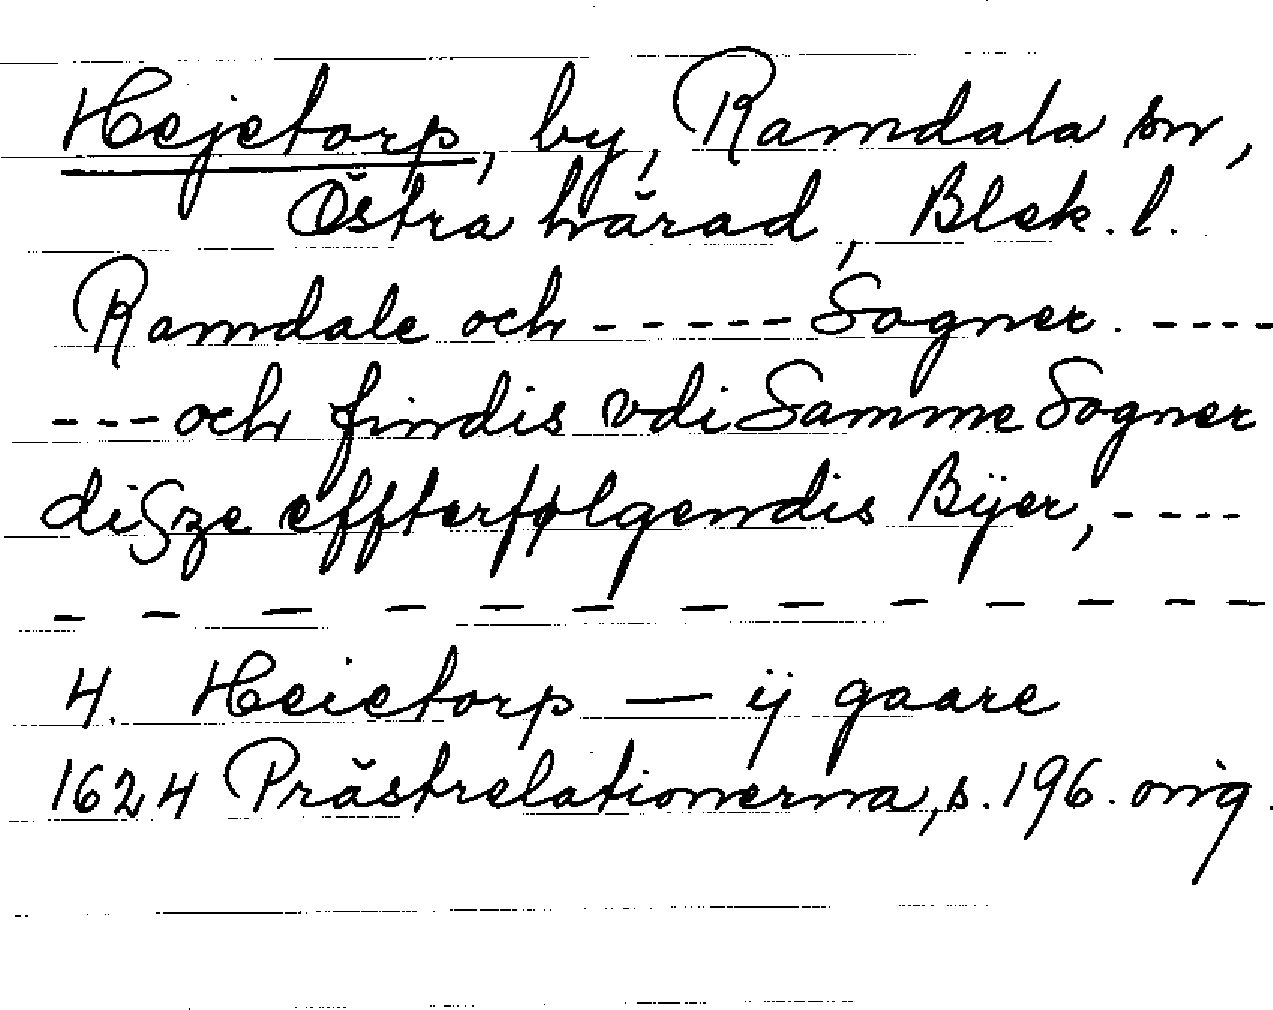 Hejetorp, by, Ramdala sn,
Östra härad, Blek. l.
Ramdale och ----- Sogner. ----
--- och findis vdi Samme Sogner
disze effterfølgendis Bÿer, ----
- - - - - - - - - - - - -
4. Heietorp — ij gaare
1624 Prästrelationerna, s. 196. orig.